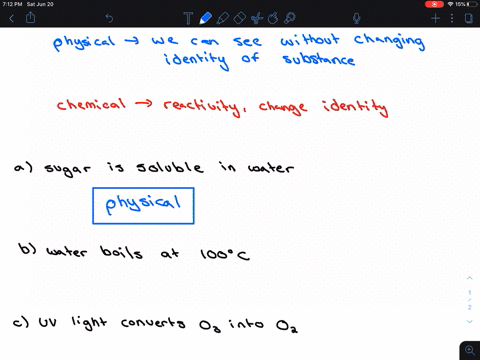 7:12 PM Sat Jun 20
15%
physical → we can see without changing
identity of substance
chemical → reactivity, change identity
a) sugar is soluble in water
physical
b) water boils at 100°C
c) UV light converts O₃ into O₂
1
/
2